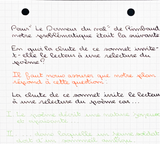 Pour "Le Dormeur du val" de Rimbaud
notre problématique était la suivante
En quoi la chute de ce sonnet invite-
t-elle le lecteur à une relecture du
poème ?
Il faut nous assurer que notre plan
répond à cette question.
La chute de ce sonnet invite le lecteur
à une relecture du poème car...